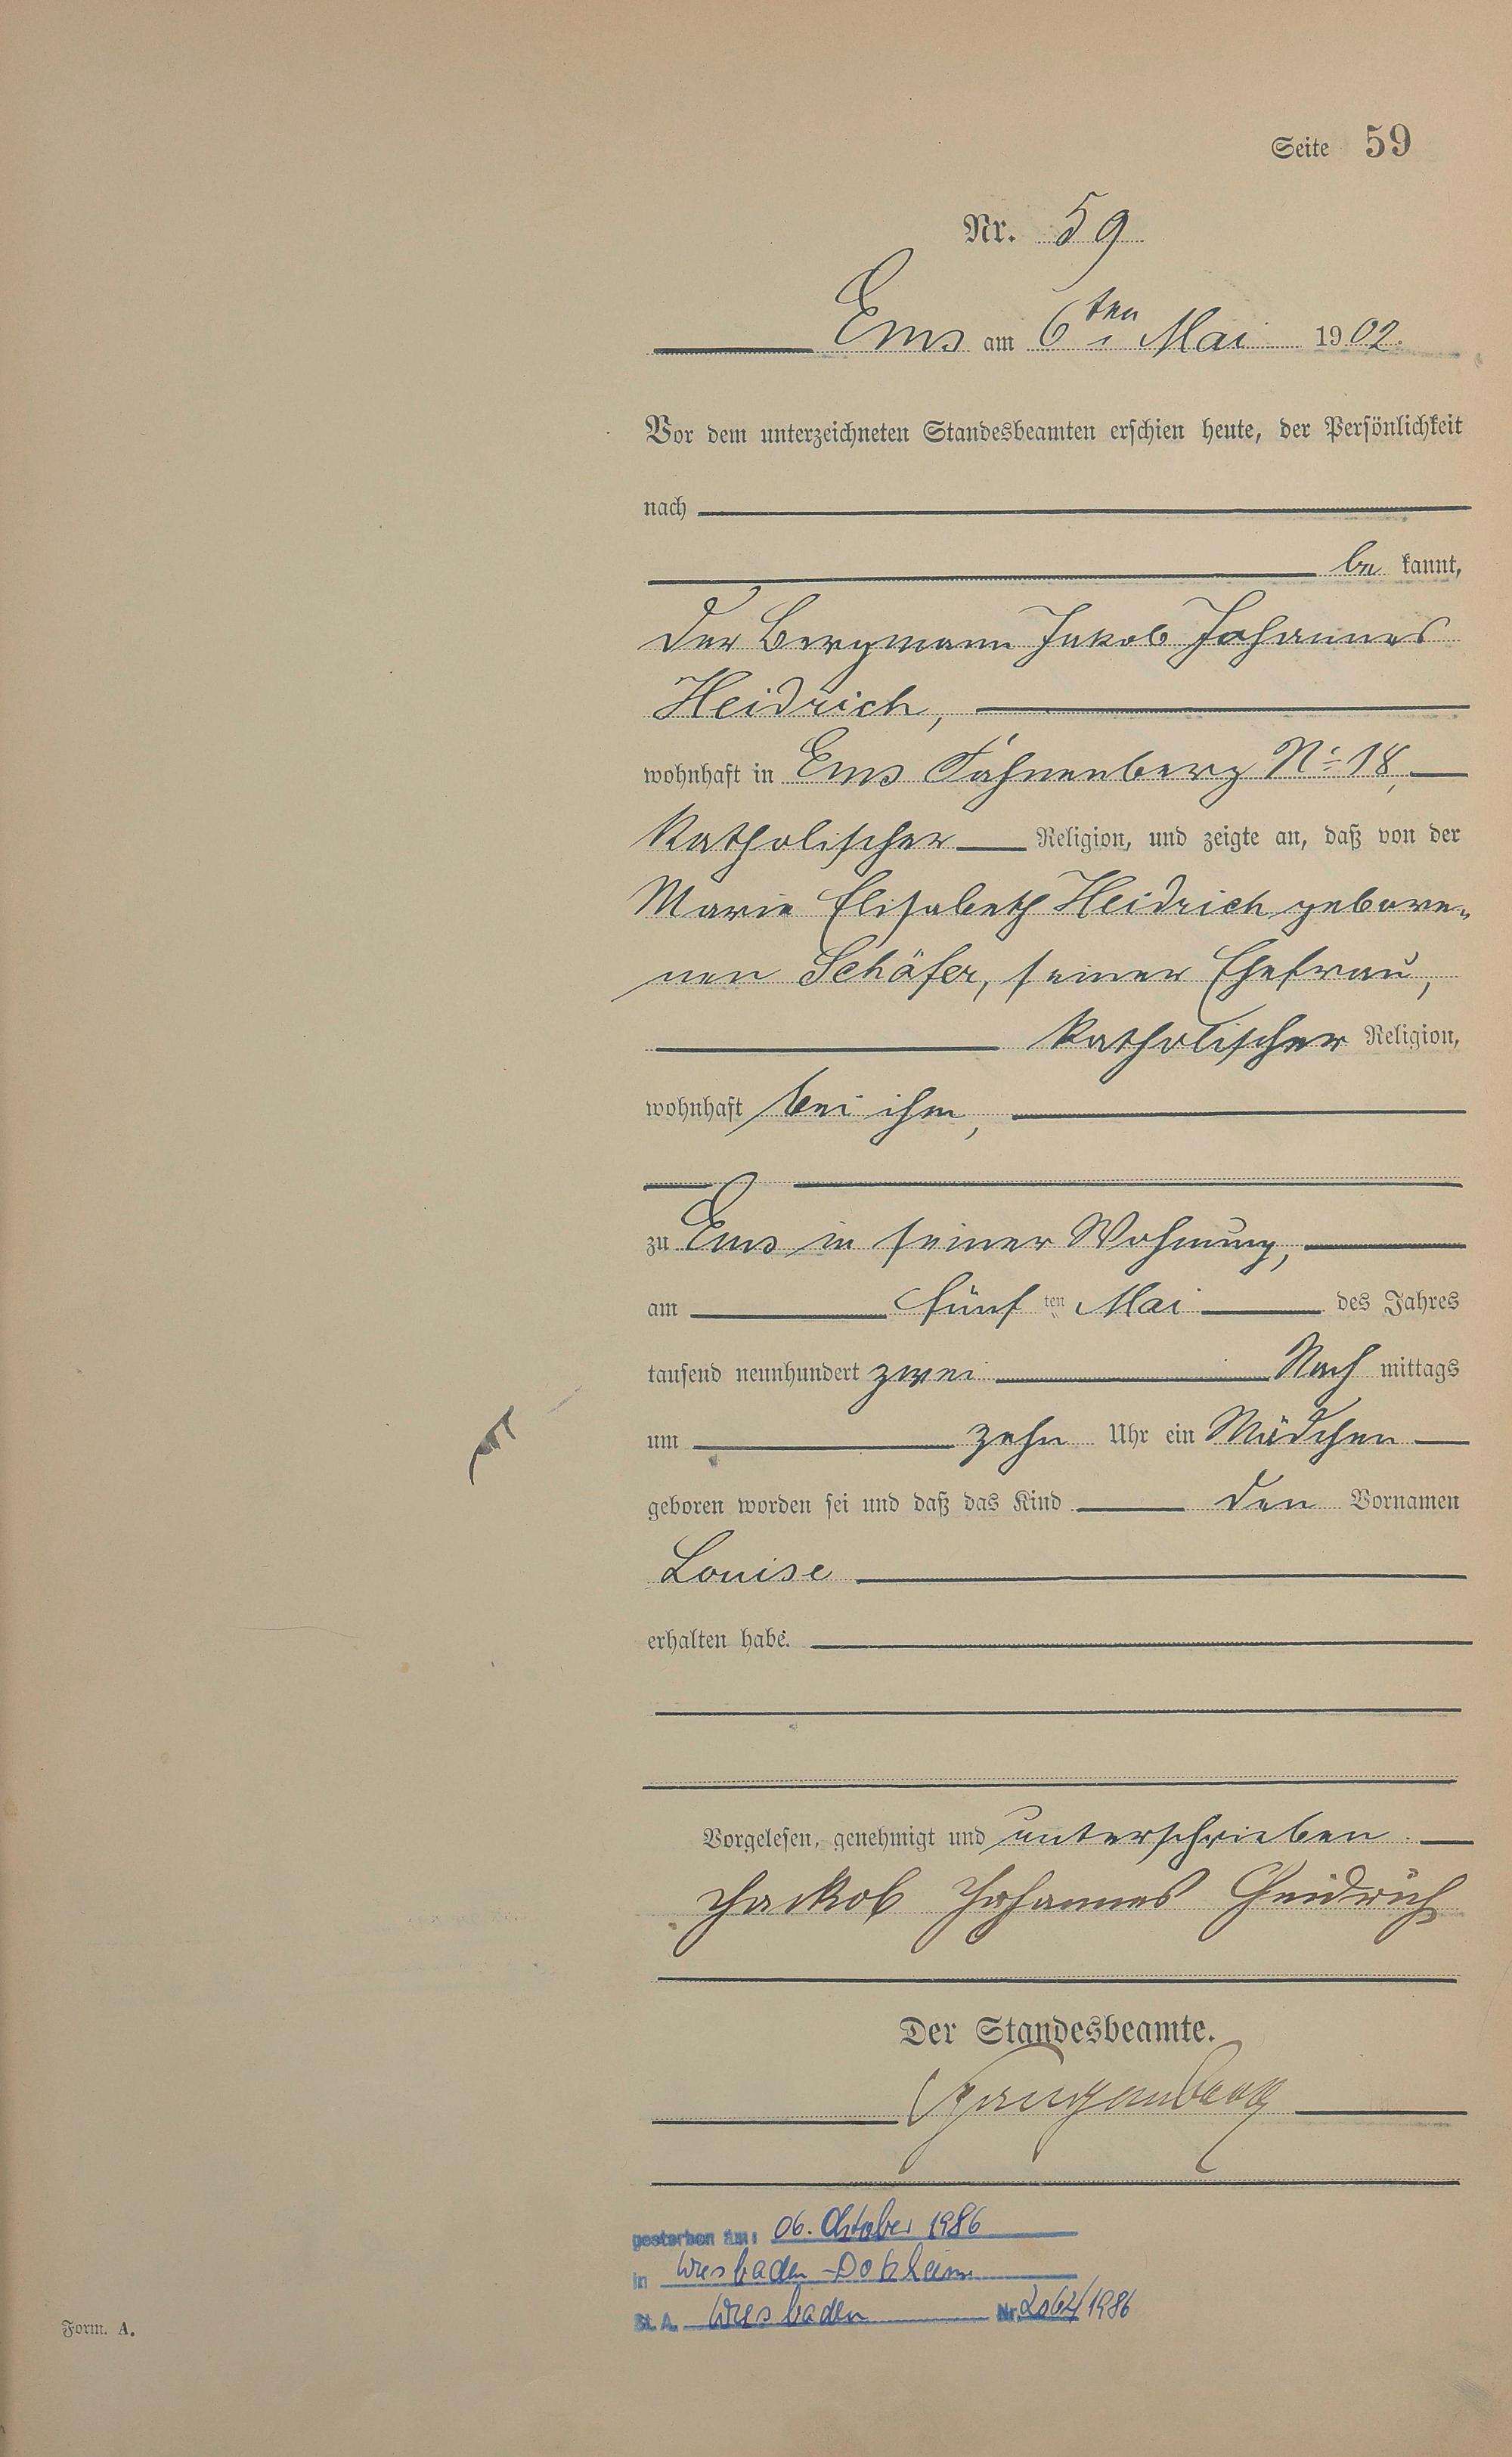 Seite 59
Nr. 59
Ems am 6ten Mai 1902.
Vor dem unterzeichneten Standesbeamten erschien heute, der Persönlichkeit
nach
be kannt,
der Bergmann Jakob Johannes
Heidrich,
wohnhaft in Ems Fahnenberg No 18,
katholischer Religion, und zeigte an, daß von der
Marie Elisabeth Heidrich gebore-
nen Schäfer, seiner Ehefrau,
katholischer Religion,
wohnhaft bei ihm,
zu Ems in seiner Wohnung,
am fünf ten Mai des Jahres
tausend neunhundert zwei Nach mittags
um zehn Uhr ein Mädchen
geboren worden sei und daß das Kind den Vornamen
Louise
erhalten habe.
Vorgelesen, genehmigt und unterschrieben.
Jackob Johannes Heidrich
Der Standesbeamte.
gestorben am: 06. Oktober 1986
in Wiesbaden-Dotzheim
St. A. Wiesbaden Nr. /1986
Form. A.